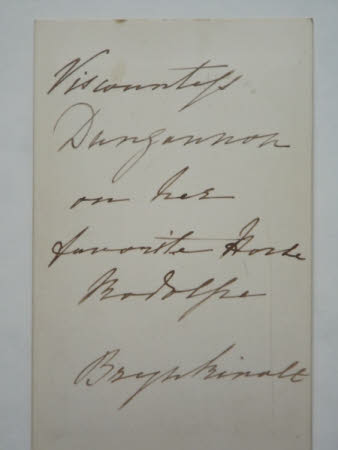 Viscountess
Dungannon
on her
favorite Horse
Rodolphe
Brynkinalt